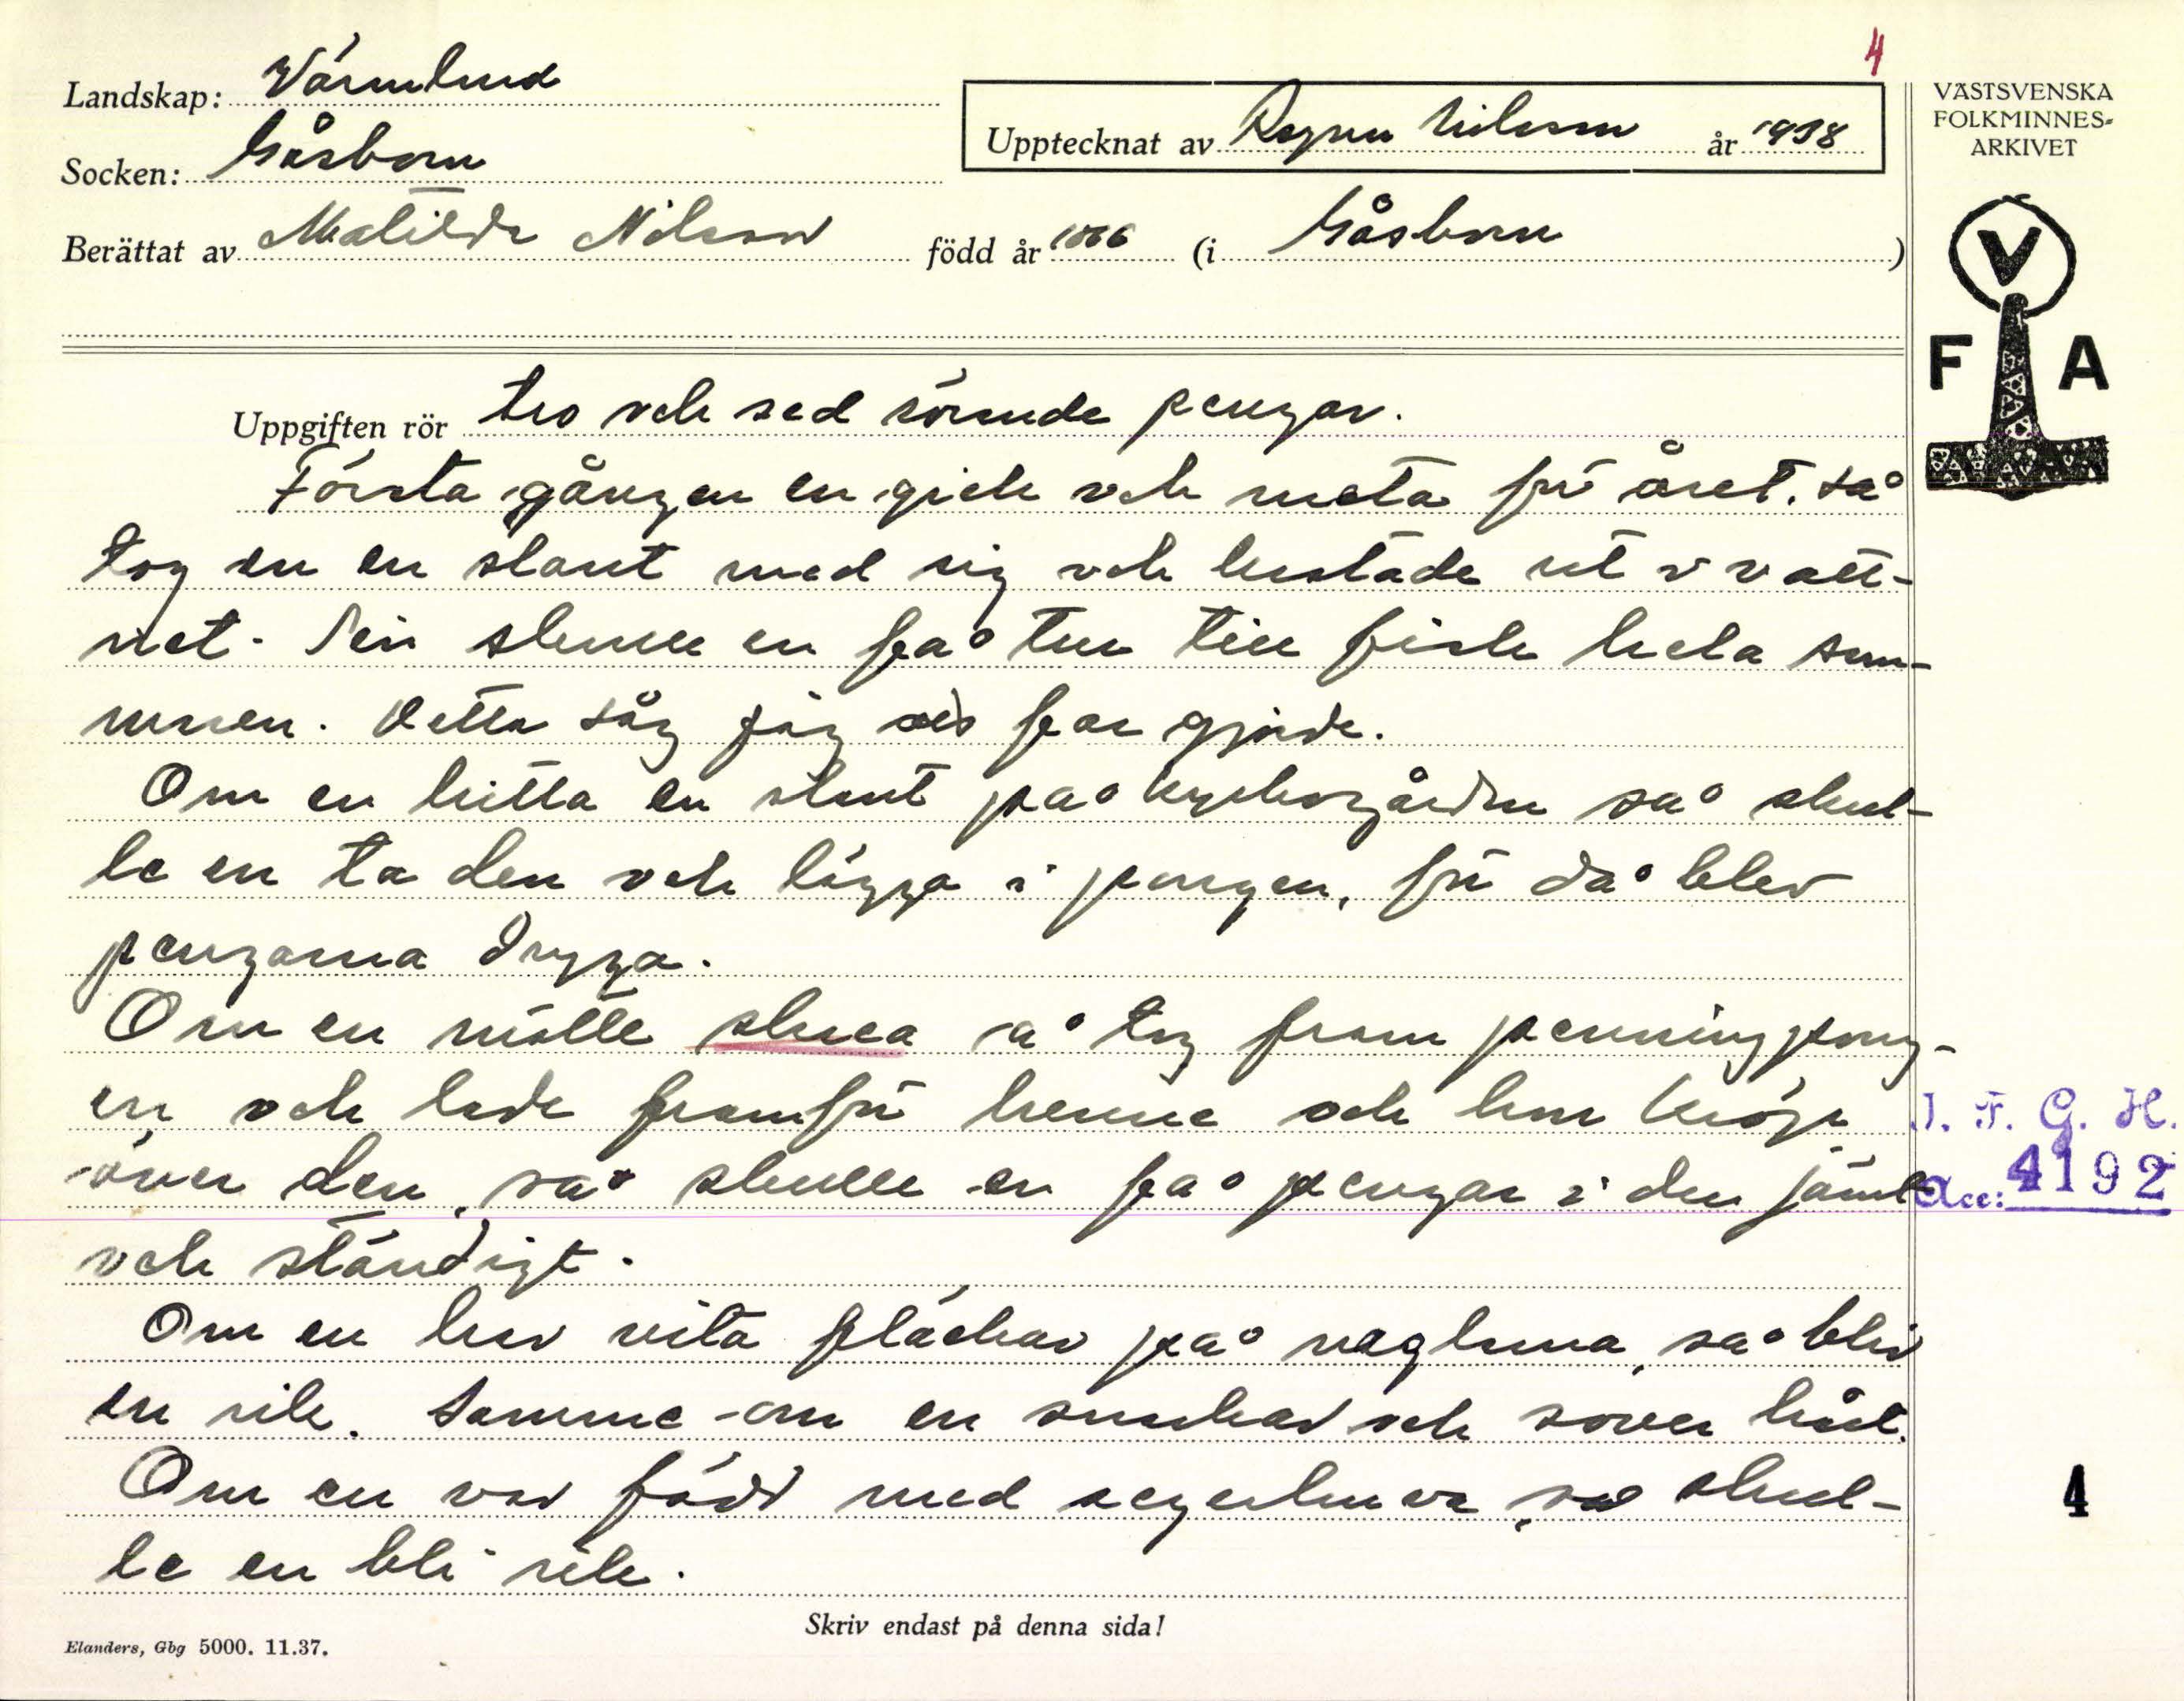 4
Landskap: Värmland
Socken: Gåsborn
Upptecknat av Ragnar Nilsson år 1938
Berättat av Matilda Nilsson född år 1866 (i Gåsborn)
VÄSTSVENSKA
FOLKMINNES-
ARKIVET
V
F A
Uppgiften rör tro och sed rörande pengar.
Första gången en gick och meta för året. så
tog en en slant med sig och kastade ut i vatt-
net. Sen skulle en få tur till fisk hela som-
maren. Detta såg jag far gjorde.
Om en hitta en slant på kyrkogården så skul-
le en ta den och lägga i pungen, för då blev
pengarna dryga.
Om en mötte skata å tog fram penningpung-
en och lade framför henne och hon kröp
över den, så skulle en få pengar i den jämt
och ständigt.
Om en har vita fläckar på naglarna, så blir
en rik. Samme om en snarkar och sover hårt.
Om en var född med segerhuva så skul-
le en bli rik.
I. F. G. H.
Acc: 4192
4
Skriv endast på denna sida!
Elanders, Gbg 5000. 11.37.